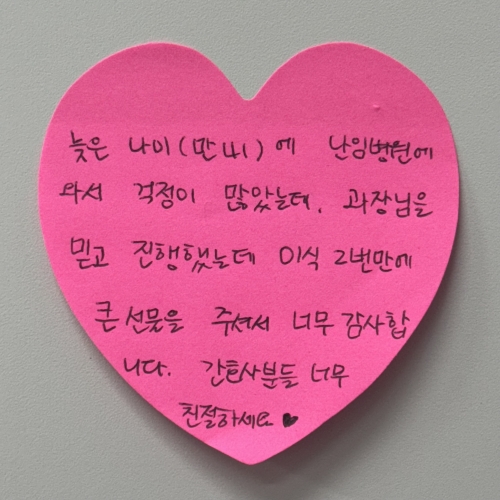 늦은 나이(만41)에 난임병원에
와서 걱정이 많았는데, 과장님을
믿고 진행했는데 이식 2번만에
큰 선물을 주셔서 너무 감사합
니다. 간호사분들 너무
친절하세요 ♥